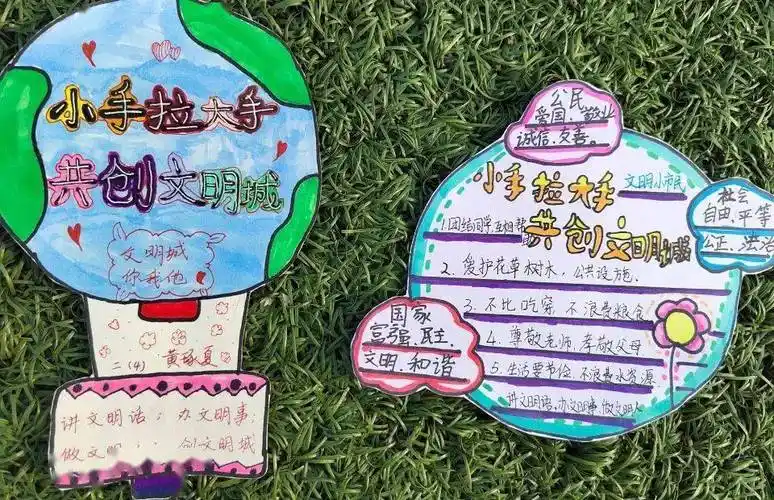 小手拉大手
共创文明城
文明城
你我他
二(4) 黄琢夏
讲文明话;办文明事;
做文明
创文明城
公民
爱国、敬业
诚信、友善。
小手拉大手
文明小市民
共创文明城
1.团结同学,互相帮
2. 爱护花草树木,公共设施.
3. 不比吃穿,不浪费粮食
4. 尊敬老师,孝敬父母
5. 生活要节俭,不浪费水资源
讲文明语,办文明事,做文明人
社会
自由,平等
公正、法治
国家
富强、民主、
文明、和谐